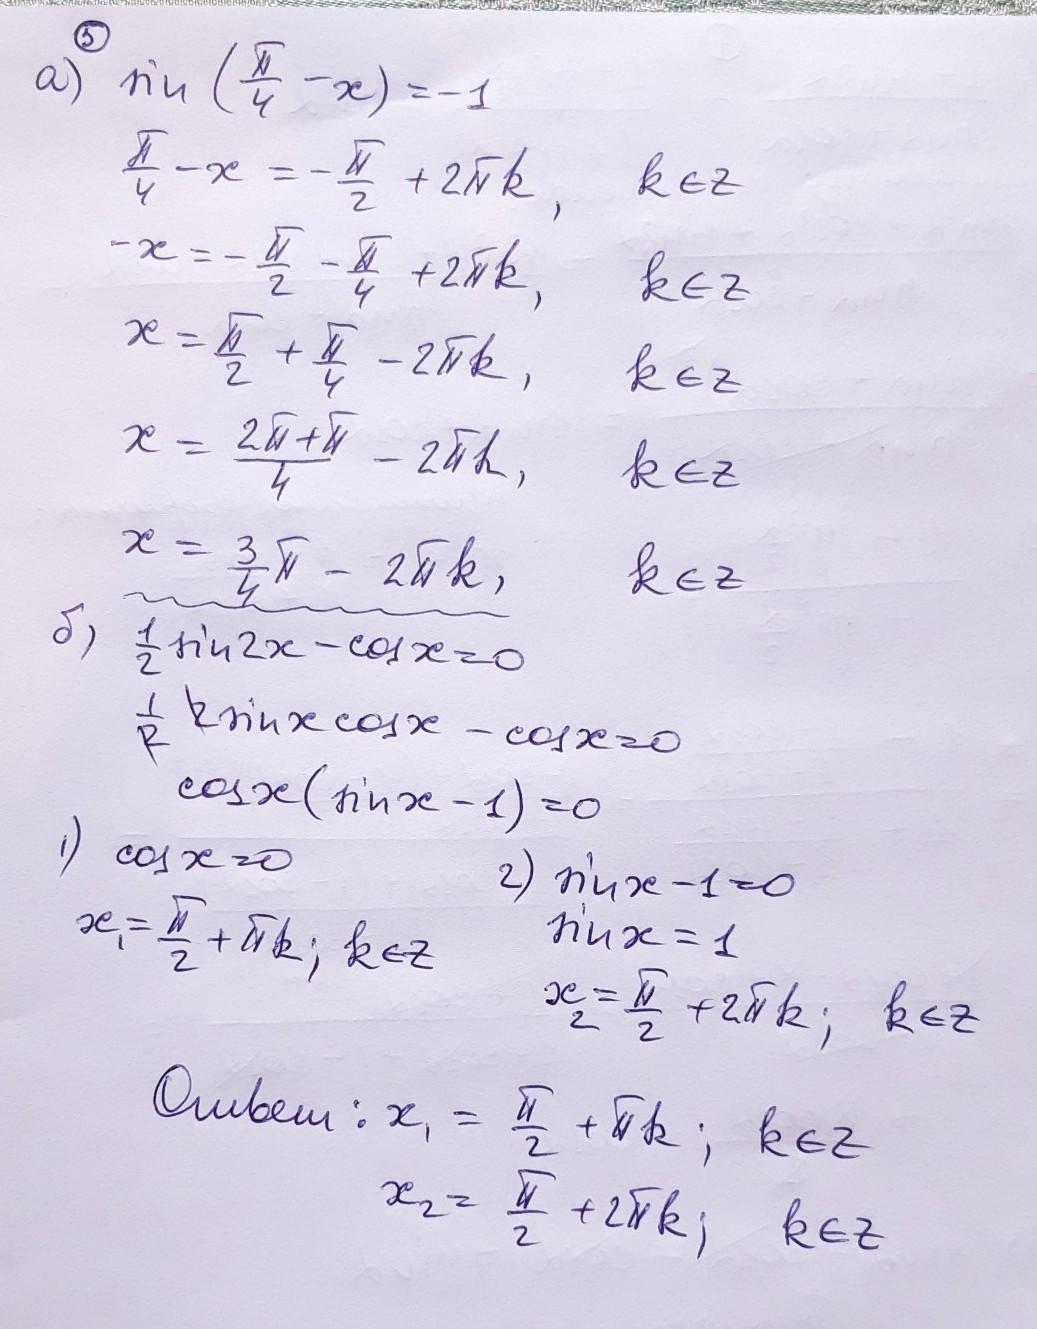 5
а) sin (π/4 - x) = -1
π/4 - x = -π/2 + 2πk, k∈z
-x = -π/2 - π/4 + 2πk, k∈z
x = π/2 + π/4 - 2πk, k∈z
x = (2π+π)/4 - 2πk, k∈z
x = 3/4 π - 2πk, k∈z
б) 1/2 sin2x - cosx = 0
1/2 2sinx cosx - cosx = 0
cosx (sinx - 1) = 0
1) cosx = 0
x₁ = π/2 + πk; k∈z
2) sinx - 1 = 0
sinx = 1
x₂ = π/2 + 2πk; k∈z
Ответ: x₁ = π/2 + πk; k∈z
x₂ = π/2 + 2πk; k∈z